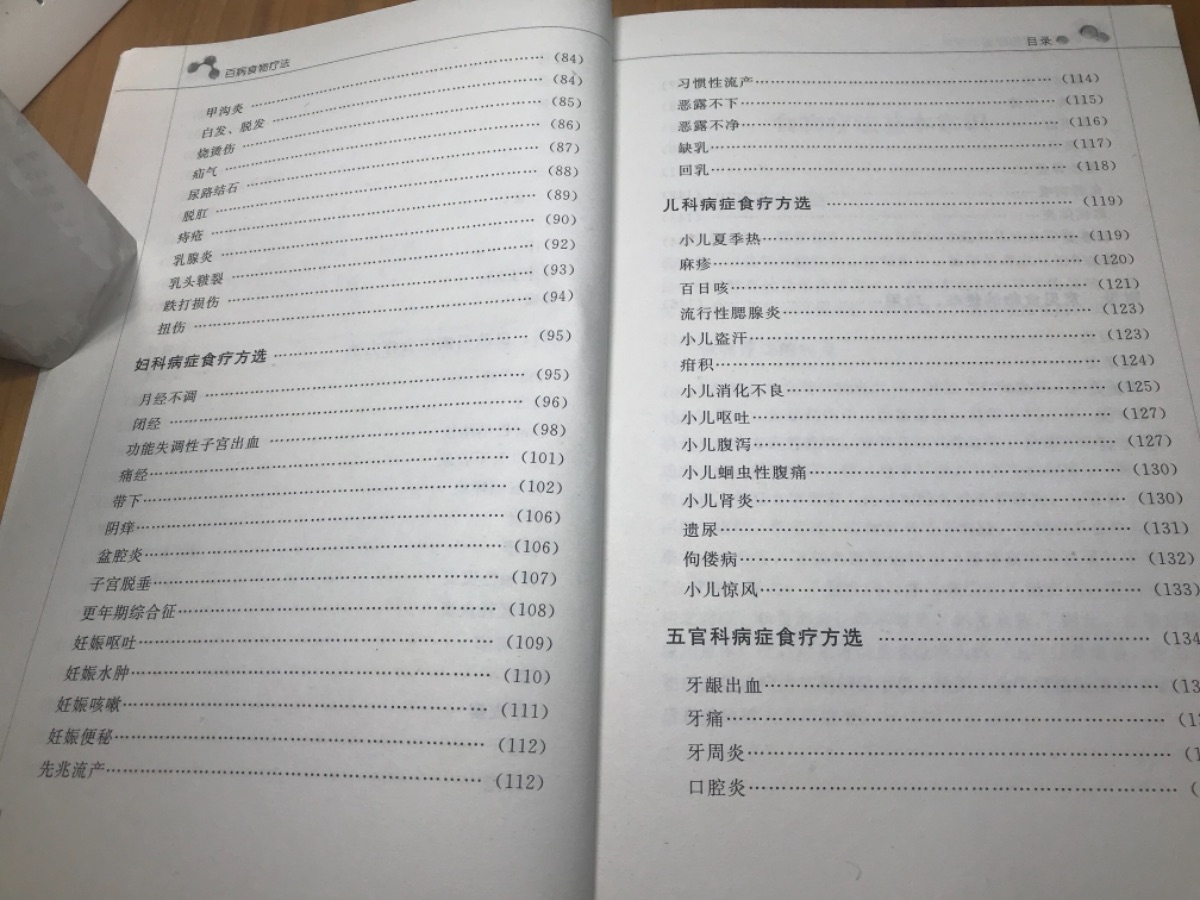 百病食物疗法
甲沟炎……(84)
白发、脱发……(84)
烧烫伤……(85)
疝气……(86)
尿路结石……(87)
脱肛……(88)
痔疮……(89)
乳腺炎……(90)
乳头皲裂……(92)
跌打损伤……(93)
扭伤……(94)
妇科病症食疗方选……(95)
月经不调……(95)
闭经……(96)
功能失调性子宫出血……(98)
痛经……(101)
带下……(102)
阴痒……(106)
盆腔炎……(106)
子宫脱垂……(107)
更年期综合征……(108)
妊娠呕吐……(109)
妊娠水肿……(110)
妊娠咳嗽……(111)
妊娠便秘……(112)
先兆流产……(112)
目录
习惯性流产……(114)
恶露不下……(115)
恶露不净……(116)
缺乳……(117)
回乳……(118)
儿科病症食疗方选……(119)
小儿夏季热……(119)
麻疹……(120)
百日咳……(121)
流行性腮腺炎……(123)
小儿盗汗……(123)
疳积……(124)
小儿消化不良……(125)
小儿呕吐……(127)
小儿腹泻……(127)
小儿蛔虫性腹痛……(130)
小儿肾炎……(130)
遗尿……(131)
佝偻病……(132)
小儿惊风……(133)
五官科病症食疗方选……(134
牙龈出血……(13
牙痛……(1
牙周炎……(1
口腔炎……(